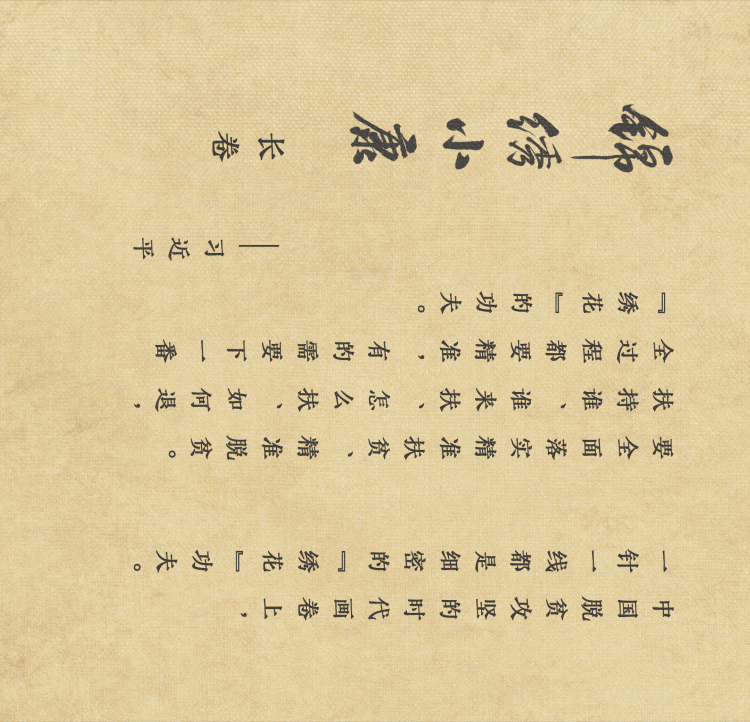 中国脱贫攻坚的时代画卷上，
一针一线都是细密的『绣花』功夫。
要全面落实精准扶贫、精准脱贫。
扶持谁、谁来扶、怎么扶、如何退，
全过程都要精准，有的需要下一番
『绣花』的功夫。
——习近平
锦绣小康 长卷